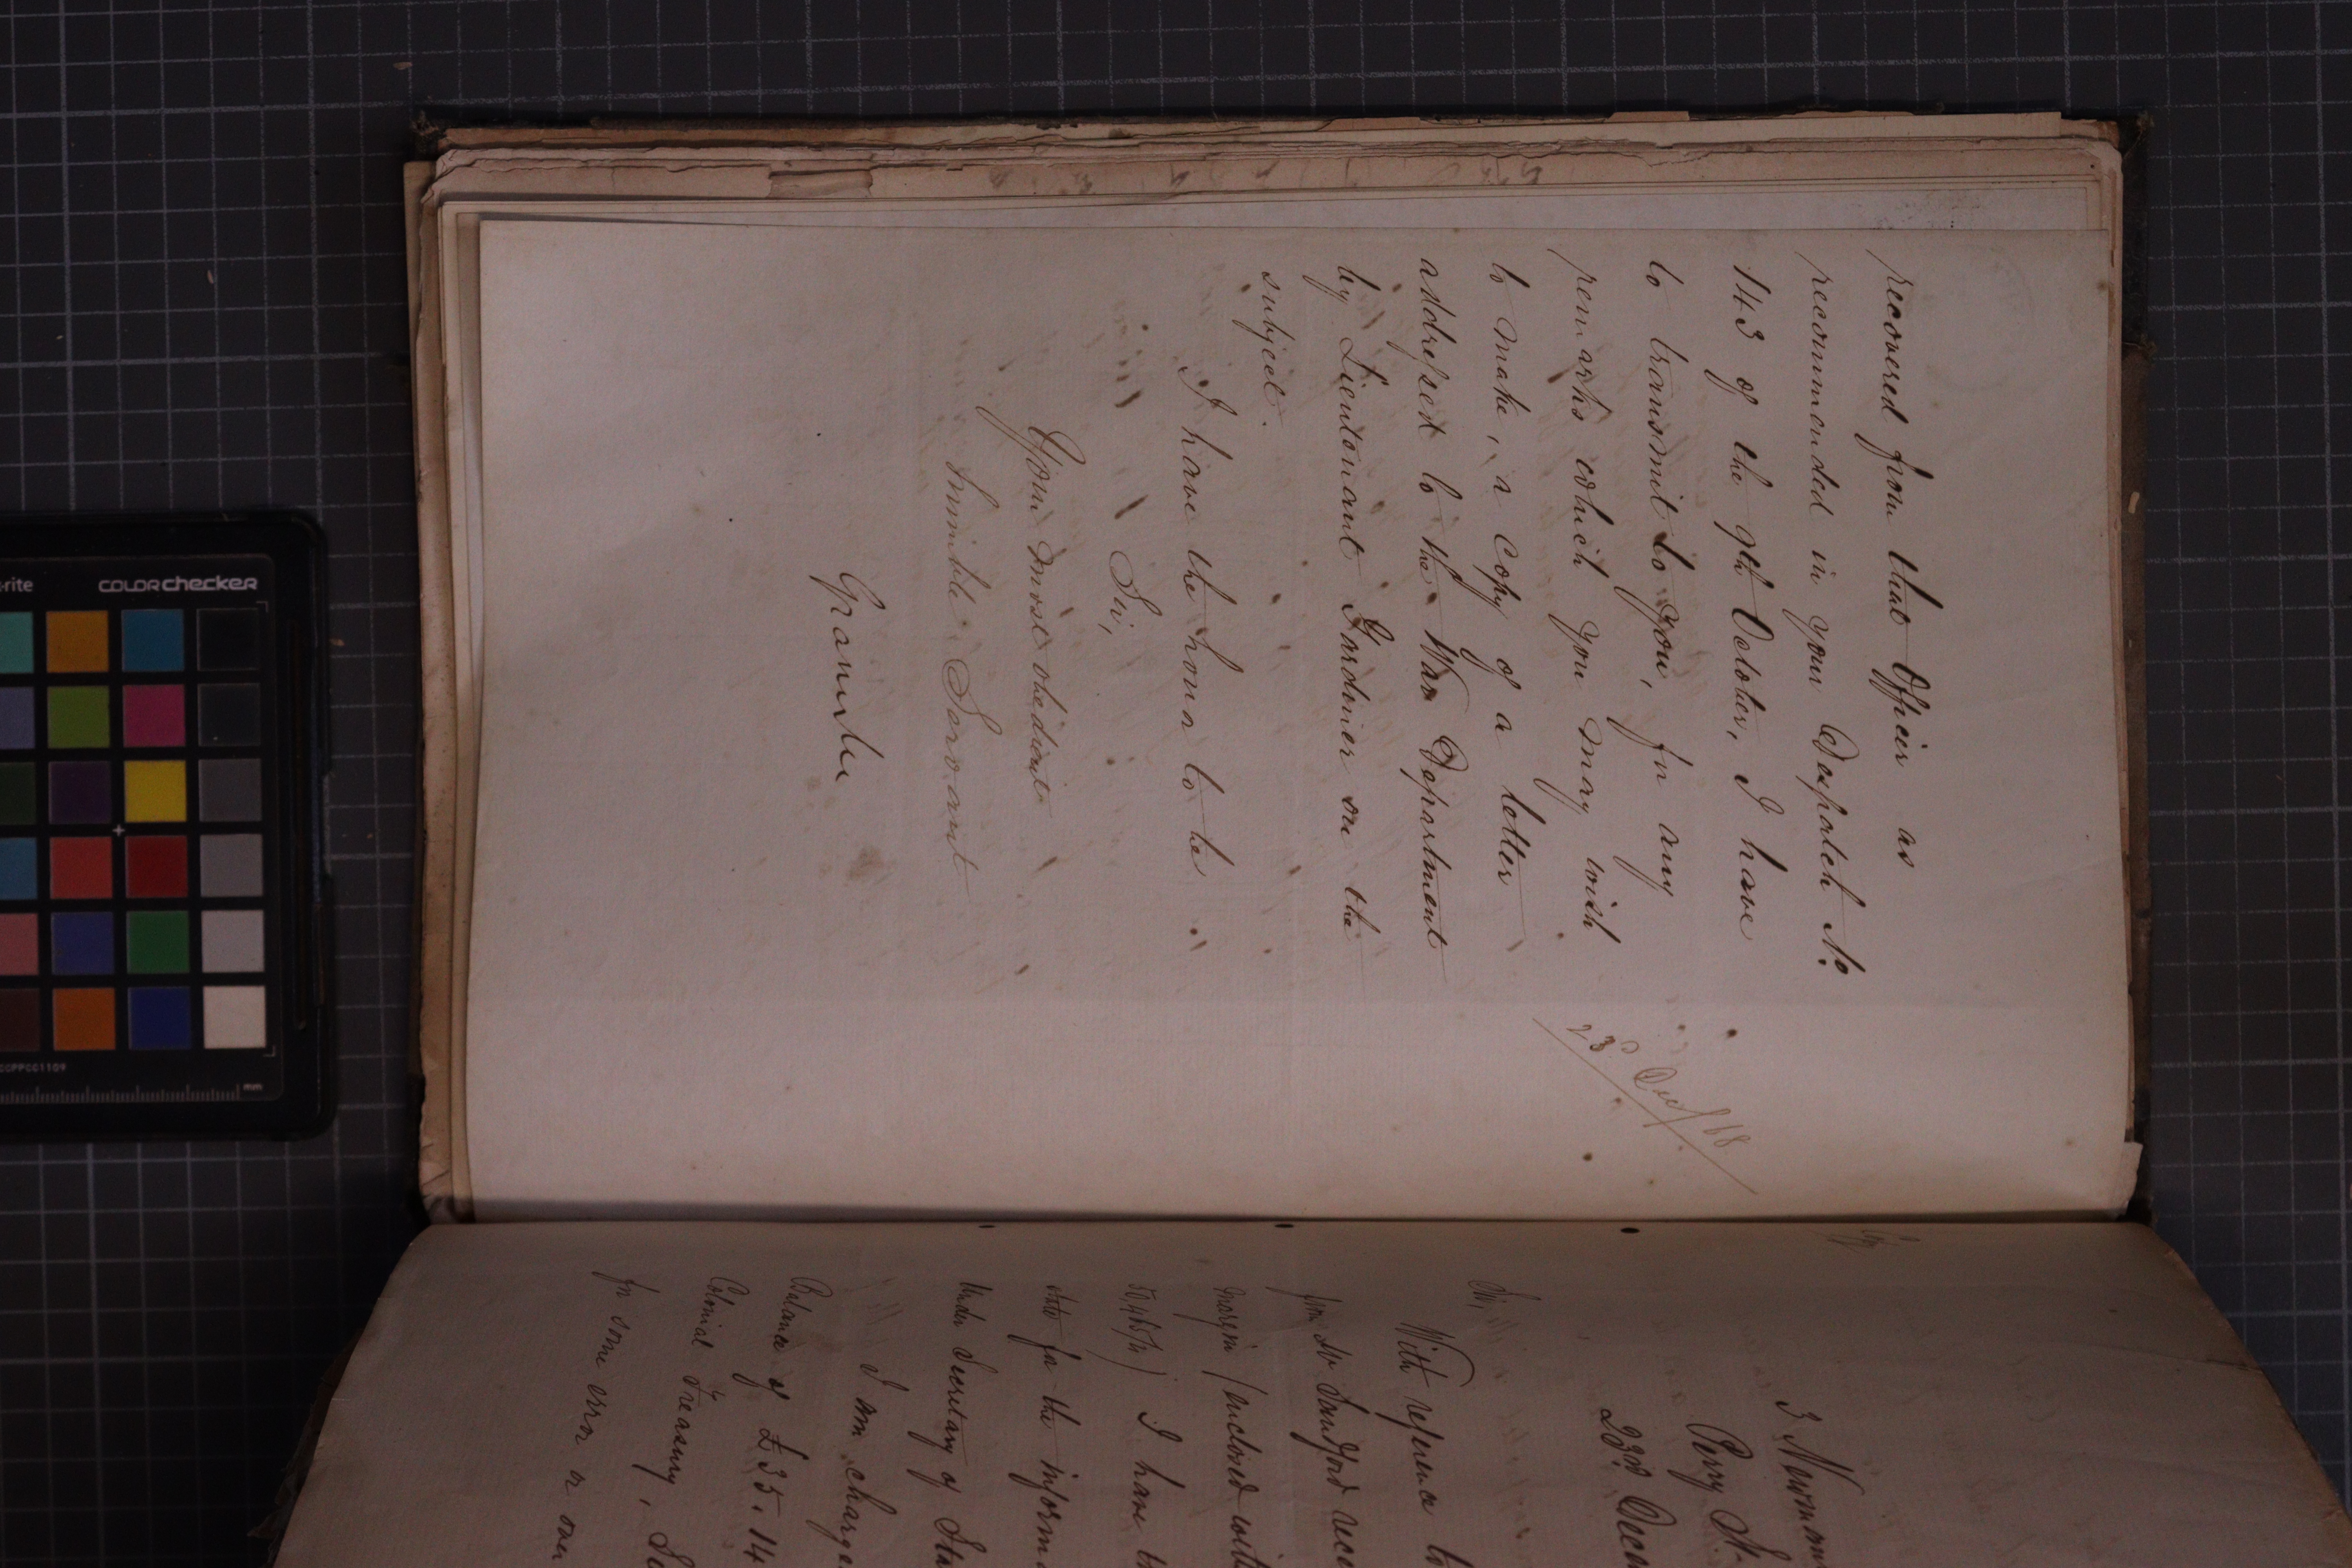 recovered from that Officer as
recommended in your Despatch No
143 of the 9th October, I have
to transmit to you, for any
remarks which you may wish
to make, a copy of a letter
addressed to the War Department
by Lieutenant Gardiner on the
subject.
I have the honor to be
Sir,
Your most obedient
humble Servant
Granville
23d Decr/68
3 Newman
Percy St.
23rd Decem
Sir,
With reference to
from Sir Sandford rece
margin (enclosed with
I have to
for the inform
Under Secretary of Sta
I am charge
Balance of £35.14
Colonial Treasury, Si
for some error or over
-rite
colorchecker
CCPPCC1109
mm